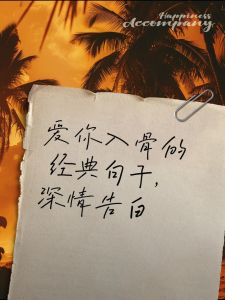 Happiness
Accompany
爱你入骨的
经典句子，
深情告白